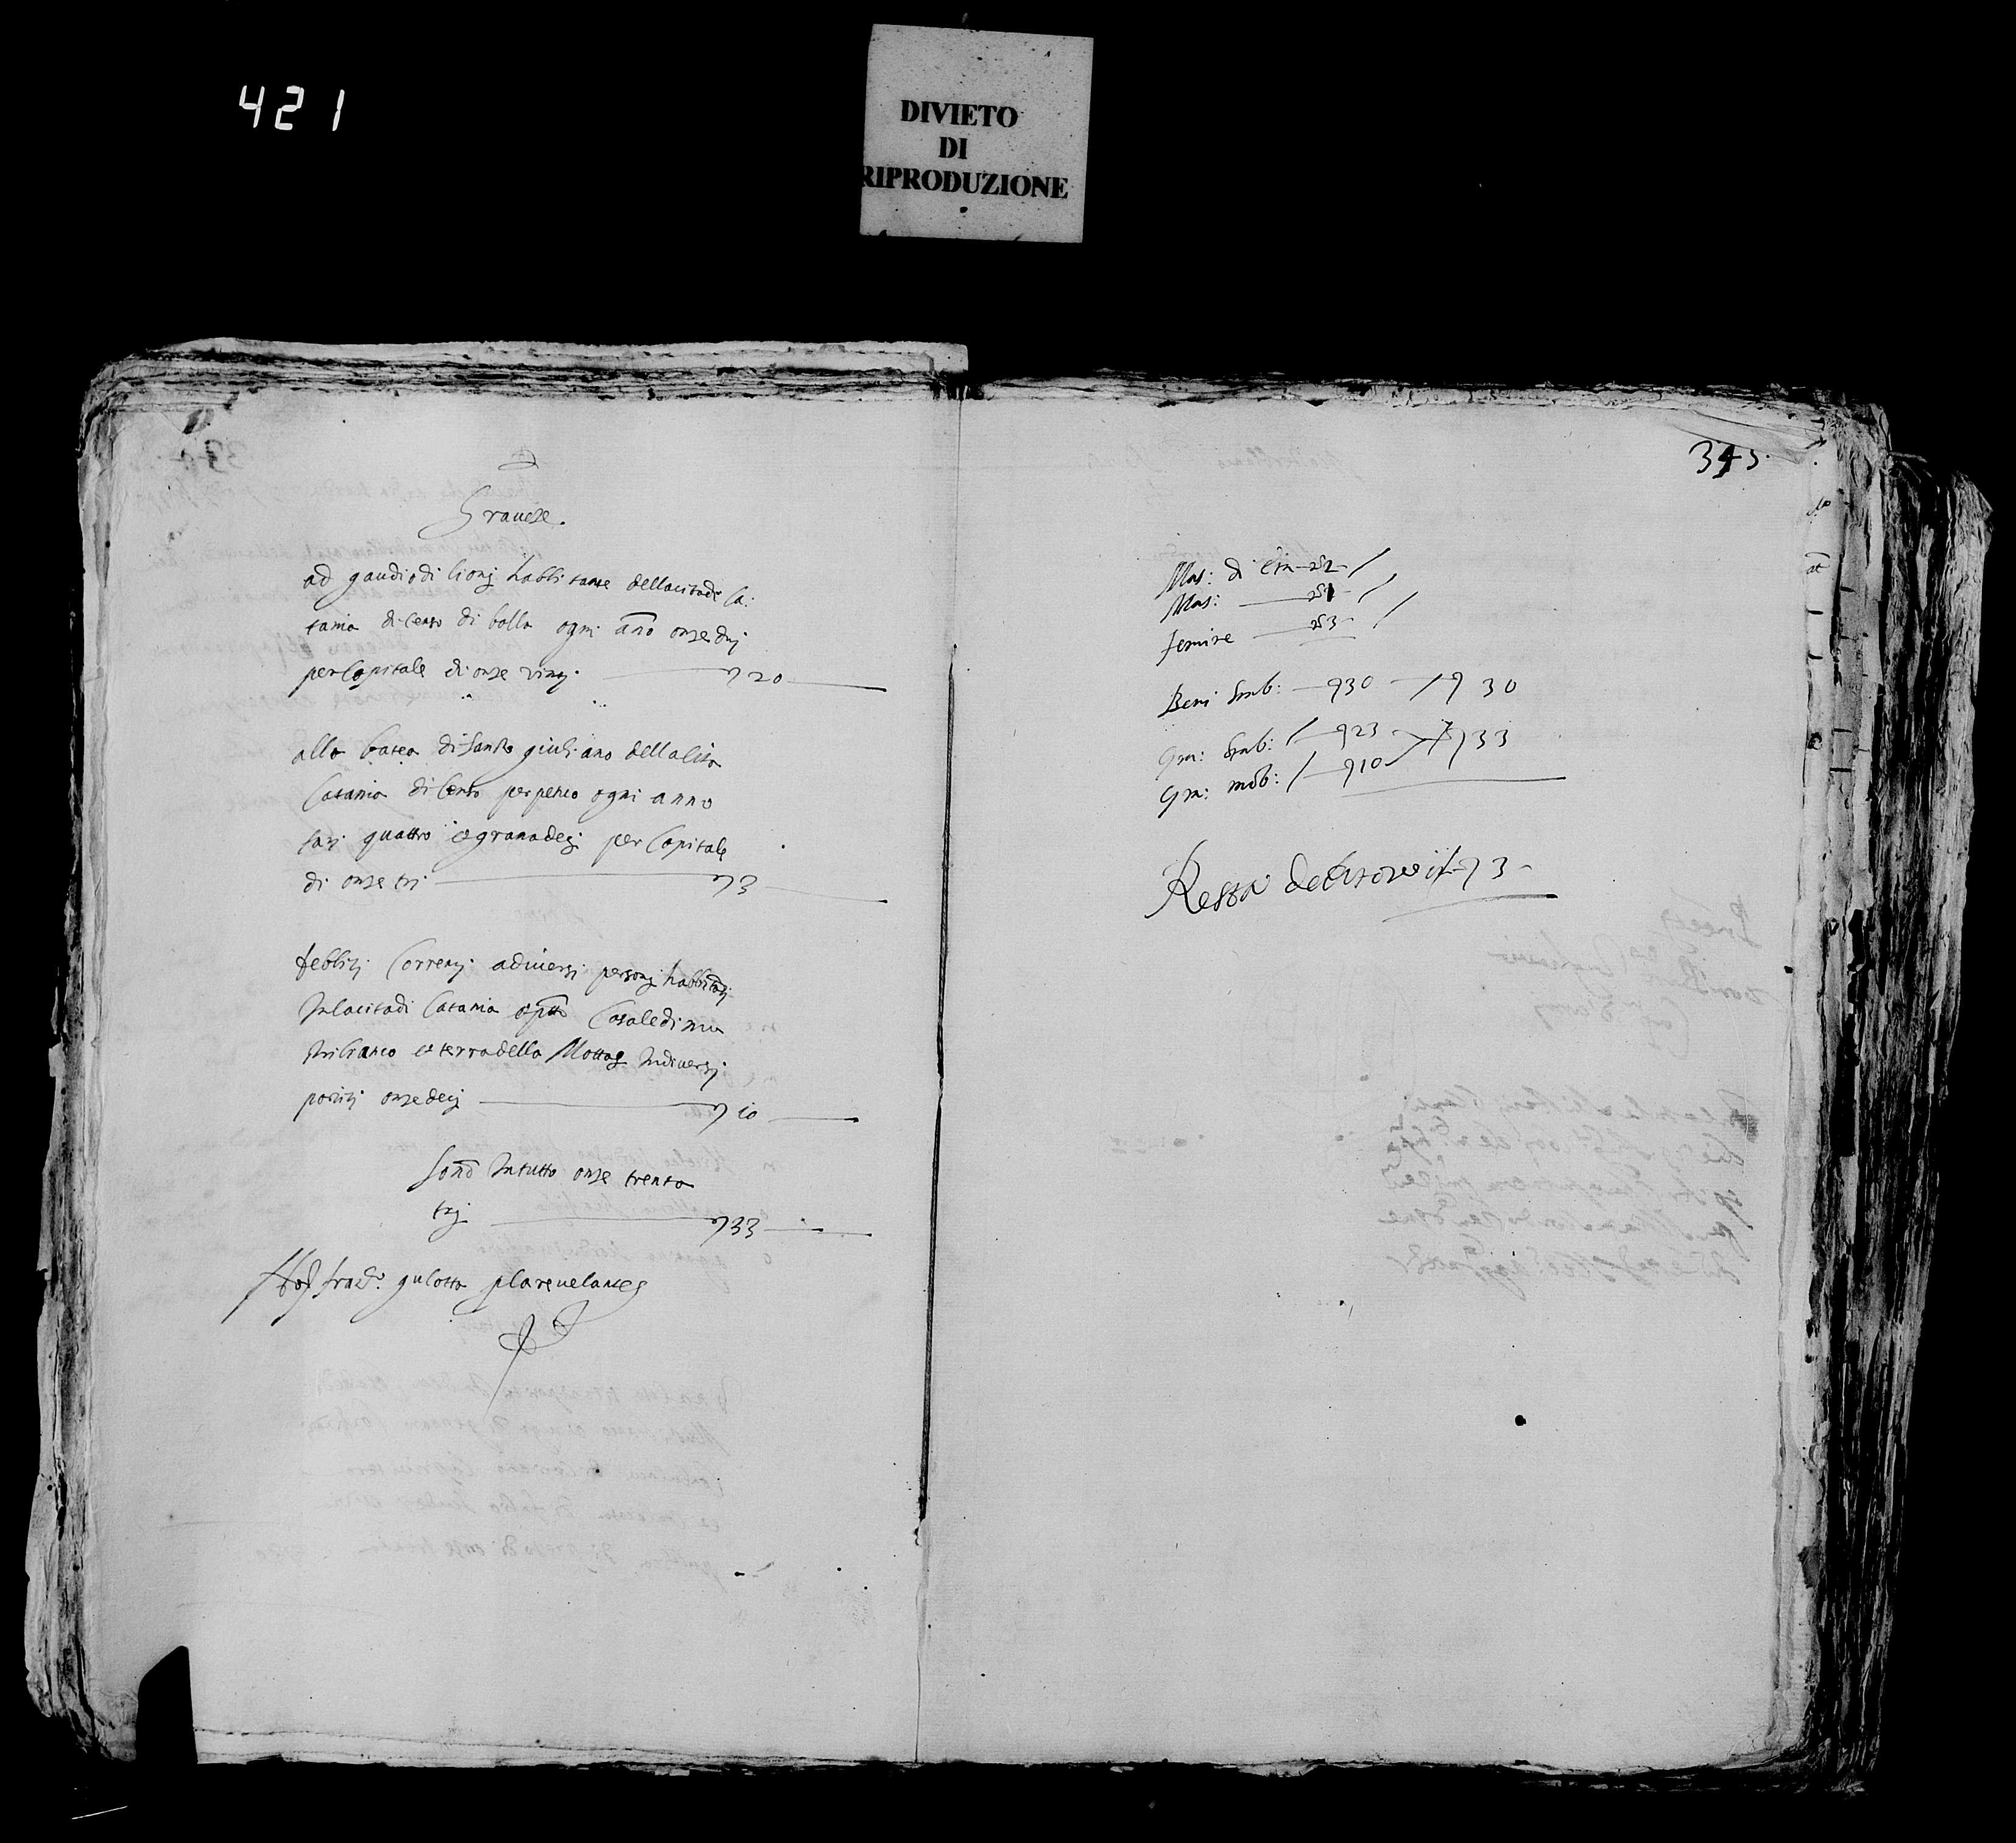 421
DIVIETO
DI
RIPRODUZIONE
Graveze.
ad gaudiodi lionj habbitante dellacitade Ca:
tania di censo di bolla ogni anno onze duj
per Capitale di onze vintj 20
alla batea di Santo giulj ano della cita
Catania di Censo perpetuo ogni anno
tarj quattro et grana decj per Capitale
di onze trj 3
debbitj Correntj adiuersj personj habbitatj
Inlacitadi Catania et Casaledi mu
stribianco et terra della Motta Indiuersj
partitj onze decj 10
sono Intutto onze trenta
trj 33
gulotta revelante
345.
Mas: di
Mas:
femine
Beni Stab: 30 30
Gra: Stab: 23 33
Gra: mob: 10
Resta debitore in 3